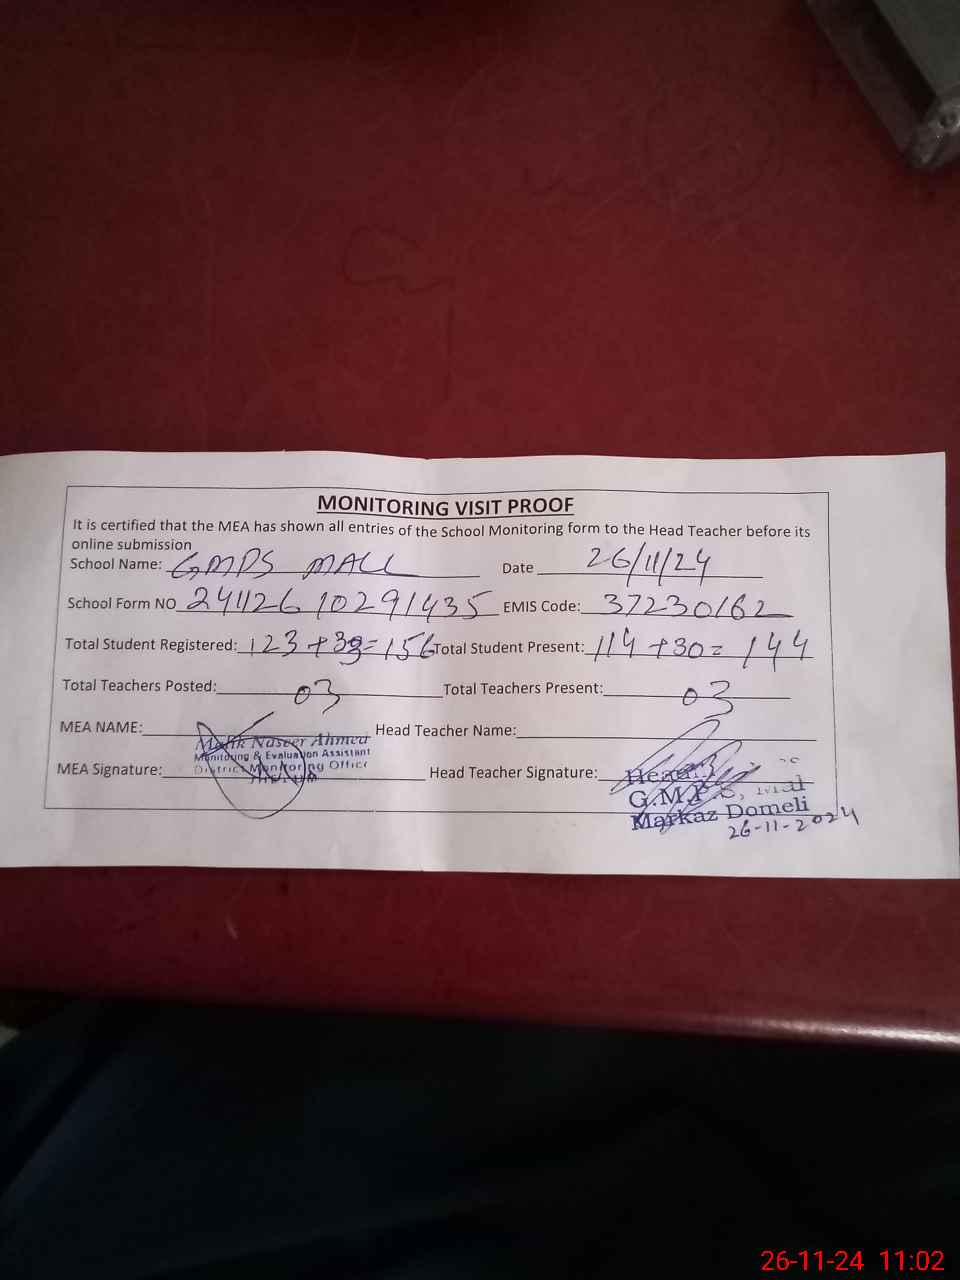 MONITORING VISIT PROOF
It is certified that the MEA has shown all entries of the School Monitoring form to the Head Teacher before its
online submission
School Name: GMPS MALL Date 26/11/24
School Form NO 241126 10291435 EMIS Code: 37230162
Total Student Registered: 123+33=156 Total Student Present: 114+30=144
Total Teachers Posted: 03 Total Teachers Present: 03
MEA NAME: Head Teacher Name:
Malik Naseer Ahmed
Monitoring & Evaluation Assistant
District Monitoring Office
MEA Signature: Head Teacher Signature:
G.M.P.S, Mal
Markaz Domeli
26-11-2024
26-11-24 11:02